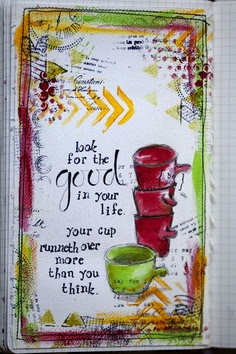 look
for the
good
in your
life.
your cup
runneth over
more
than you
think.